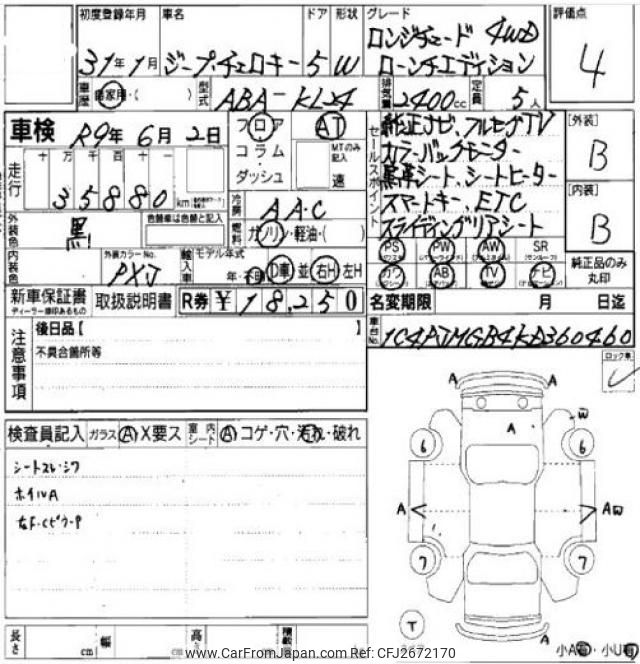 初度登録年月 車名 ドア 形状 グレード 評価点
31年1月 ジープ.チェロキー 5 W ロンジチュード 4WD
ローンチエディション 4
車歴 自家用・( ) 型式 ABA-KL24 排気量 2400cc 定員 5人
車検 R9年6月2日 フロア AT セールスポイント 純正ナビ、フルセグTV [外装]
コラム MTのみ記入 カラーバックモニター B
走行 十万千百十一 ダッシュ 速 黒革シート、シートヒーター
35880 km 冷房 AAC スマートキー、ETC [内装]
外装色 黒 色替車は色替と記入 燃料 ガソリン・軽油・( ) スライディングリアシート B
内装色 外装カラーNo. PXJ 輸入車 モデル年式 年・不明 D車 並 右H 左H
PS PW AW SR 純正品のみ
カワ AB TV ナビ 丸印
新車保証書 取扱説明書 R券 ¥18,250 名変期限 月 日迄
ディーラー捺印あるもの
注意事項 後日品【 】 車台No. 1C4PJMGB4KD360460
不具合箇所等 ロック車
検査員記入 ガラス A X要ス 室内シート A コゲ・穴・汚れ・破れ
シートスレ・シワ
ホイルA
A A
A W
6 6
A A W
7 7
T A
長さ cm 幅 cm 高さ cm 積載
小A 小U
www.CarFromJapan.com Ref: CFJ2672170